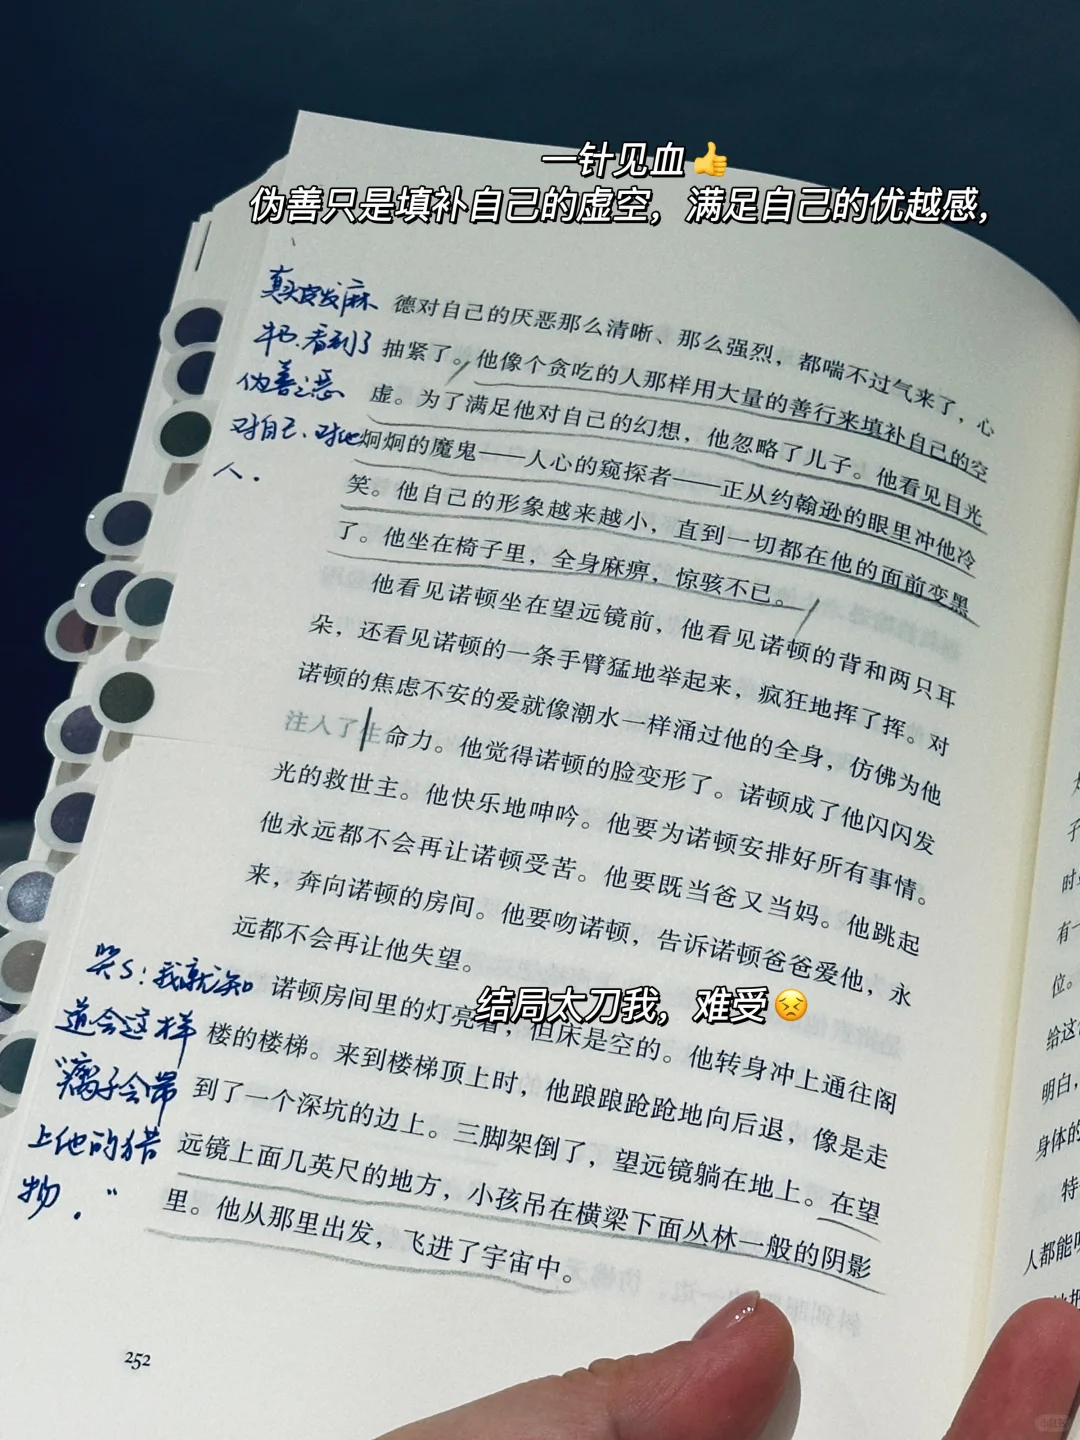 一针见血👍
伪善只是填补自己的虚空，满足自己的优越感，
真头皮发麻
书.看到了
伪善之恶
对自己、对他
人.
德对自己的厌恶那么清晰、那么强烈，都喘不过气来了，心
抽紧了。他像个贪吃的人那样用大量的善行来填补自己的空
虚。为了满足他对自己的幻想，他忽略了儿子。他看见目光
炯炯的魔鬼——人心的窥探者——正从约翰逊的眼里冲他冷
笑。他自己的形象越来越小，直到一切都在他的面前变黑
了。他坐在椅子里，全身麻痹，惊骇不已。
他看见诺顿坐在望远镜前，他看见诺顿的背和两只耳
朵，还看见诺顿的一条手臂猛地举起来，疯狂地挥了挥。对
诺顿的焦虑不安的爱就像潮水一样涌过他的全身，仿佛为他
注入了生命力。他觉得诺顿的脸变形了。诺顿成了他闪闪发
光的救世主。他快乐地呻吟。他要为诺顿安排好所有事情。
他永远都不会再让诺顿受苦。他要既当爸又当妈。他跳起
来，奔向诺顿的房间。他要吻诺顿，告诉诺顿爸爸爱他，永
远都不会再让他失望。
结局太刀我，难受😣
哭S：我就知
道会这样
“瘸子会带
上他的猎
物.”
诺顿房间里的灯亮着，但床是空的。他转身冲上通往阁
楼的楼梯。来到楼梯顶上时，他踉踉跄跄地向后退，像是走
到了一个深坑的边上。三脚架倒了，望远镜躺在地上。在望
远镜上面几英尺的地方，小孩吊在横梁下面丛林一般的阴影
里。他从那里出发，飞进了宇宙中。
252
子
时
有一
位。
给这
明白，
身体的
特
人都能